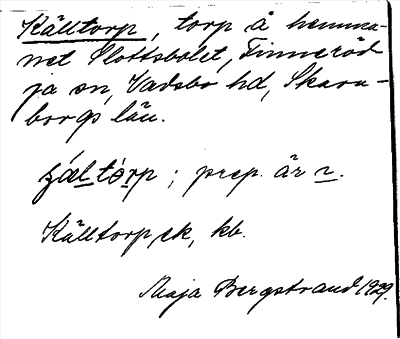 Källtorp, torp å hemma-
net Slottsbolet, Finneröd-
ja sn, Vadsbo hd, Skara-
borgs län.
; prep. är
Källtorp, ek, kb.
Maja Bergstrand 1929.